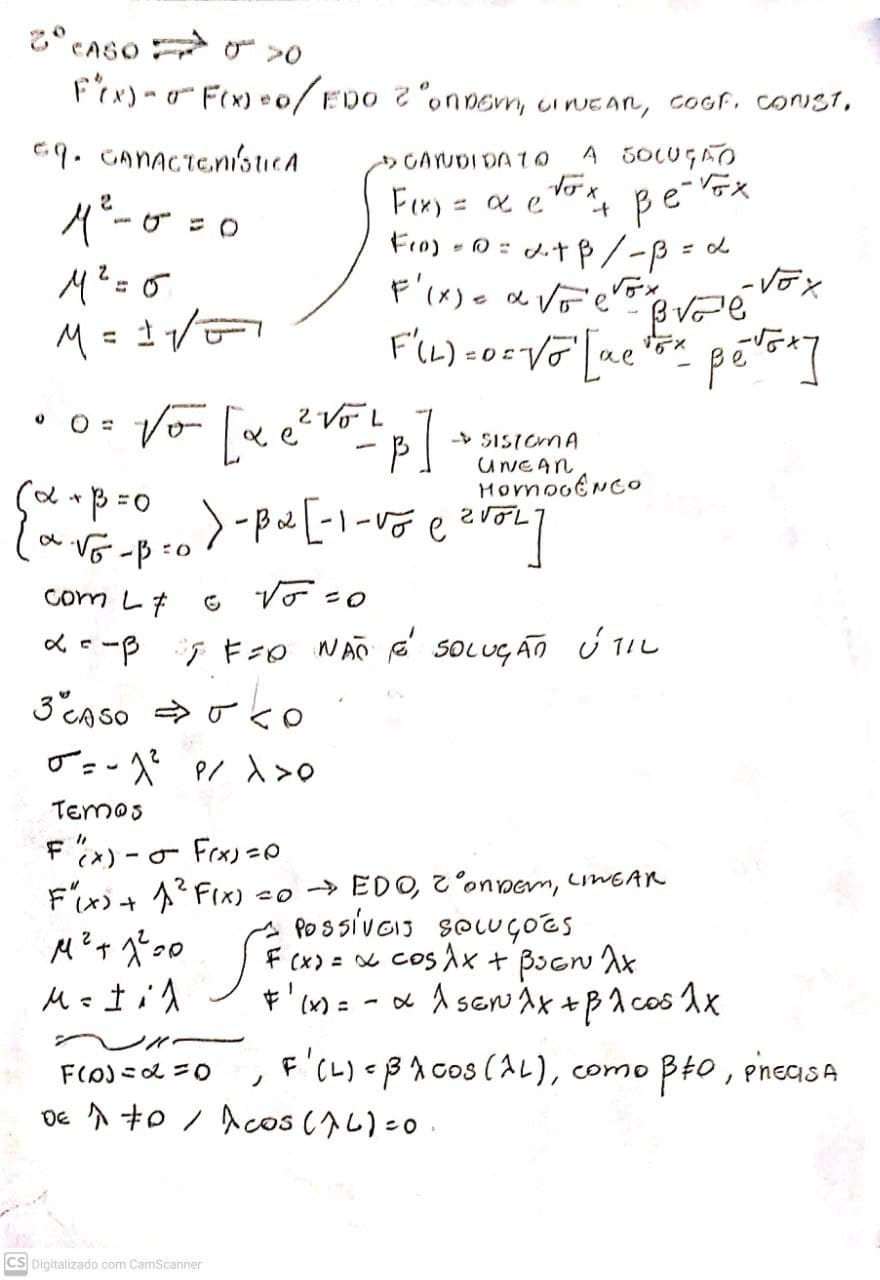 2º CASO ⟹ σ > 0
F''(x) - σ F(x) = 0 / EDO 2º ORDEM, LINEAR, COEF. CONST.
Eq. CARACTERÍSTICA
M² - σ = 0
M² = σ
M = ± √σ
→ CANDIDATO A SOLUÇÃO
F(x) = α e^{√σ x} + β e^{-√σ x}
F(0) = 0 = α + β / -β = α
F'(x) = α √σ e^{√σ x} - β √σ e^{-√σ x}
F'(L) = 0 = √σ [α e^{√σ x} - β e^{-√σ x}]
• 0 = √σ [α e^{2√σ L} - β] → SISTEMA
LINEAR
HOMOGÊNEO
{ α + β = 0
α √σ - β = 0 } - β α [-1 - √σ e^{2√σ L}]
COM L ≠ e √σ = 0
α = -β ; F = 0 NÃO É SOLUÇÃO ÚTIL
3º CASO ⟹ σ < 0
σ = - λ² P/ λ > 0
TEMOS
F''(x) - σ F(x) = 0
F''(x) + λ² F(x) = 0 → EDO, 2º ORDEM, LINEAR
M² + λ² = 0
M = ± i λ
→ POSSÍVEIS SOLUÇÕES
F(x) = α cos λx + β SEN λx
F'(x) = - α λ SEN λx + β λ cos λx
F(0) = α = 0 , F'(L) = β λ cos(λL), como β ≠ 0, PRECISA
DE λ ≠ 0 / λ cos(λL) = 0.
CS Digitalizado com CamScanner